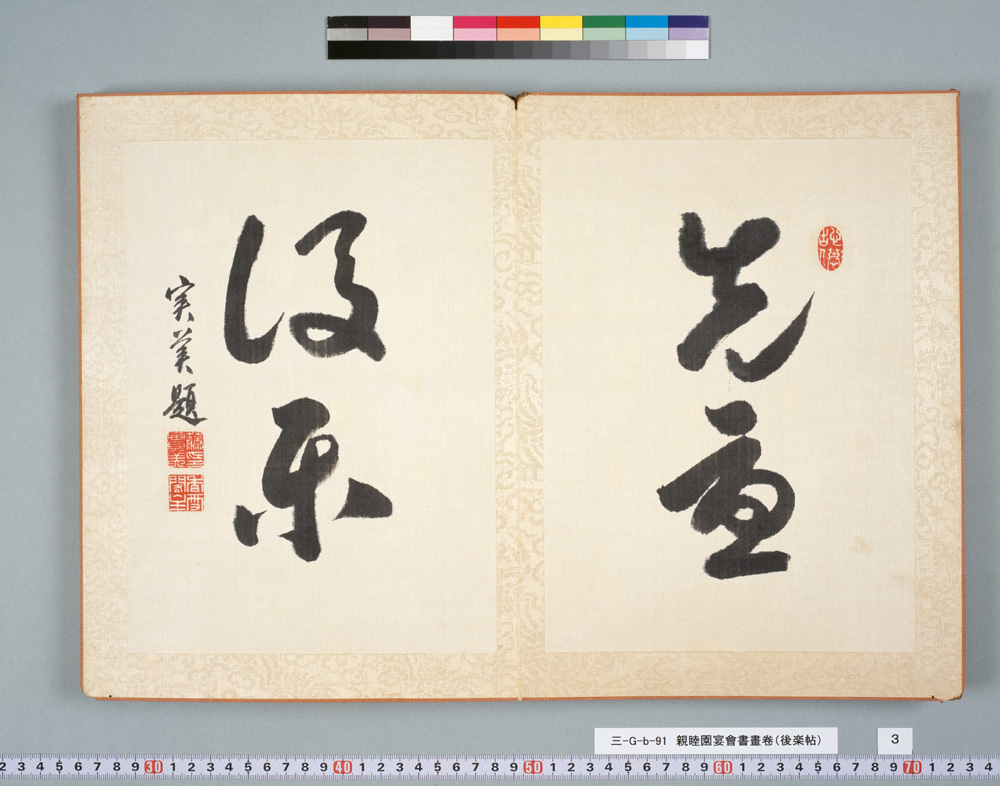 先憂
後樂
実美題
三-G-b-91 親睦園宴會書畫巻(後楽帖)
3
2 3 4 5 6 7 8 9 30 1 2 3 4 5 6 7 8 9 40 1 2 3 4 5 6 7 8 9 50 1 2 3 4 5 6 7 8 9 60 1 2 3 4 5 6 7 8 9 70 1 2 3 4